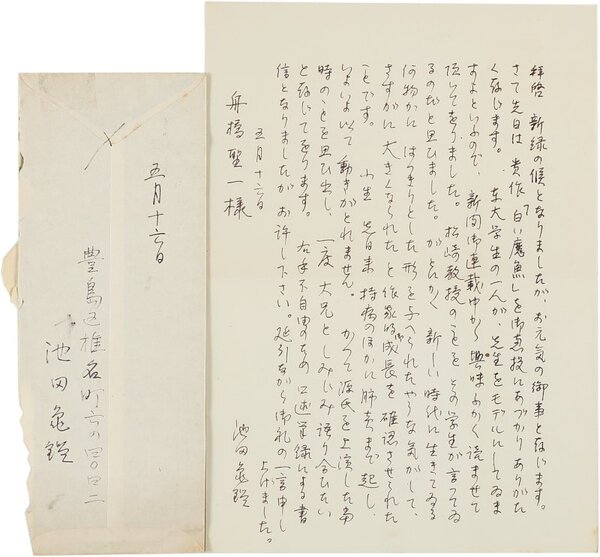 拝啓 新緑の候となりましたが、お元気の御事と存じます。
さて先日は、貴作「白い魔魚」を御恵投にあづかりありがた
く存じます。東大学生の一人が、先生をモデルにしてゐま
すよといふので、新聞御連載中から興味ふかく読ませて
頂いてをりました。松崎教授のことをその学生が言つてゐ
るのだと思ひました。がとにかく新しい時代に生きてゐる
何物かにはつきりとした形を与へられたやうな気がして、
さすがに大きくなられたと作家的御成長を確認させられた
ことです。 小生 先日来 持病のほかに肺炎まで起し、
いよいよ以て動きがとれません。かつて源氏を上演した当
時のことを思ひ出し、一度大兄としみじみ語り合ひたい
と存じてをります。 右手不自由のため口述筆録による書
信となりましたがお許し下さい。延引ながら御礼の一言申し
上げました。
五月十六日
池田亀鑑
舟橋聖一様
五月十六日
豊島区椎名町六の四〇四二
池田亀鑑